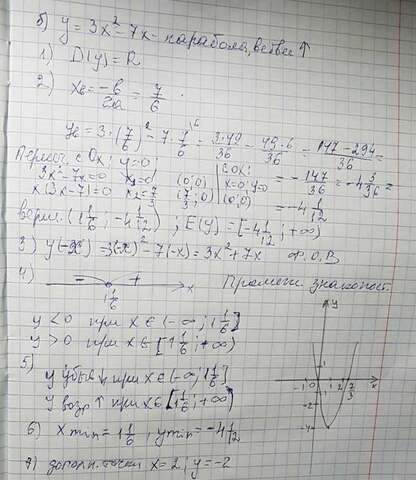 б) y = 3x² - 7x - парабола, ветви ↑
1) D(y) = R
2) xв = -b/2a = 7/6.
yв = 3·(7/6)² - 7·7/6 = 3·49/36 - 49·6/36 = 147-294/36 =
= -147/36 = -4 3/36 =
= -4 1/12
Пересеч. с Ox: y=0
3x² - 7x = 0
x(3x-7)=0 x₁=0 x₂=7/3 (0;0) (7/3; 0)
с Oy:
x=0; y=0
(0;0)
верш. (1 1/6; -4 1/12); E(y) = [-4 1/12; +∞)
3) y(-x) = 3(-x)² - 7(-x) = 3x² + 7x Ф.О.В
4) - + 1 1/6 x Промеж. знакопост.
y < 0 при x ∈ (-∞; 1 1/6]
y > 0 при x ∈ [1 1/6; +∞)
5) y убыв ↓ при x ∈ (-∞; 1 1/6]
y возр ↑ при x ∈ [1 1/6; +∞)
6) x min = 1 1/6, y min = -4 1/12
7) дополн. точки x = 2; y = -2
y
-1 0 1 2 x
7/3
-2
-4